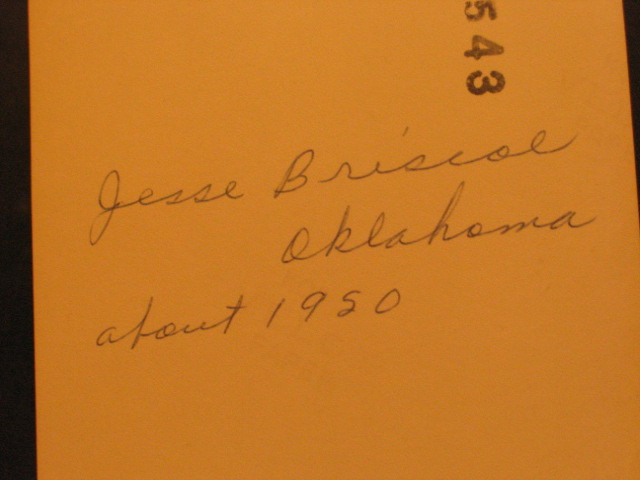 543
Jesse Briscoe
Oklahoma
about 1950